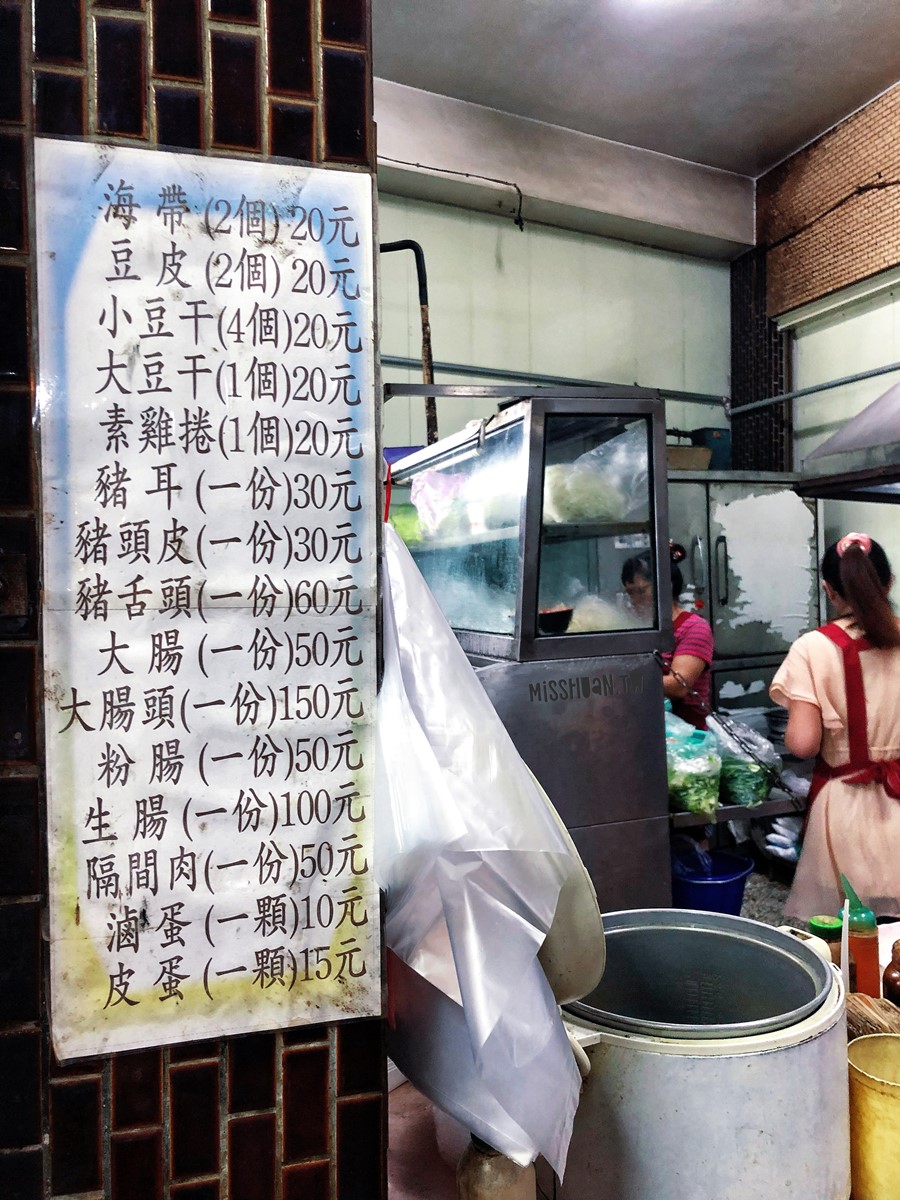 海帶(2個)20元
豆皮(2個)20元
小豆干(4個)20元
大豆干(1個)20元
素雞捲(1個)20元
豬耳(一份)30元
豬頭皮(一份)30元
豬舌頭(一份)60元
大腸(一份)50元
大腸頭(一份)150元
粉腸(一份)50元
生腸(一份)100元
隔間肉(一份)50元
滷蛋(一顆)10元
皮蛋(一顆)15元
MiSSHUaN.TW